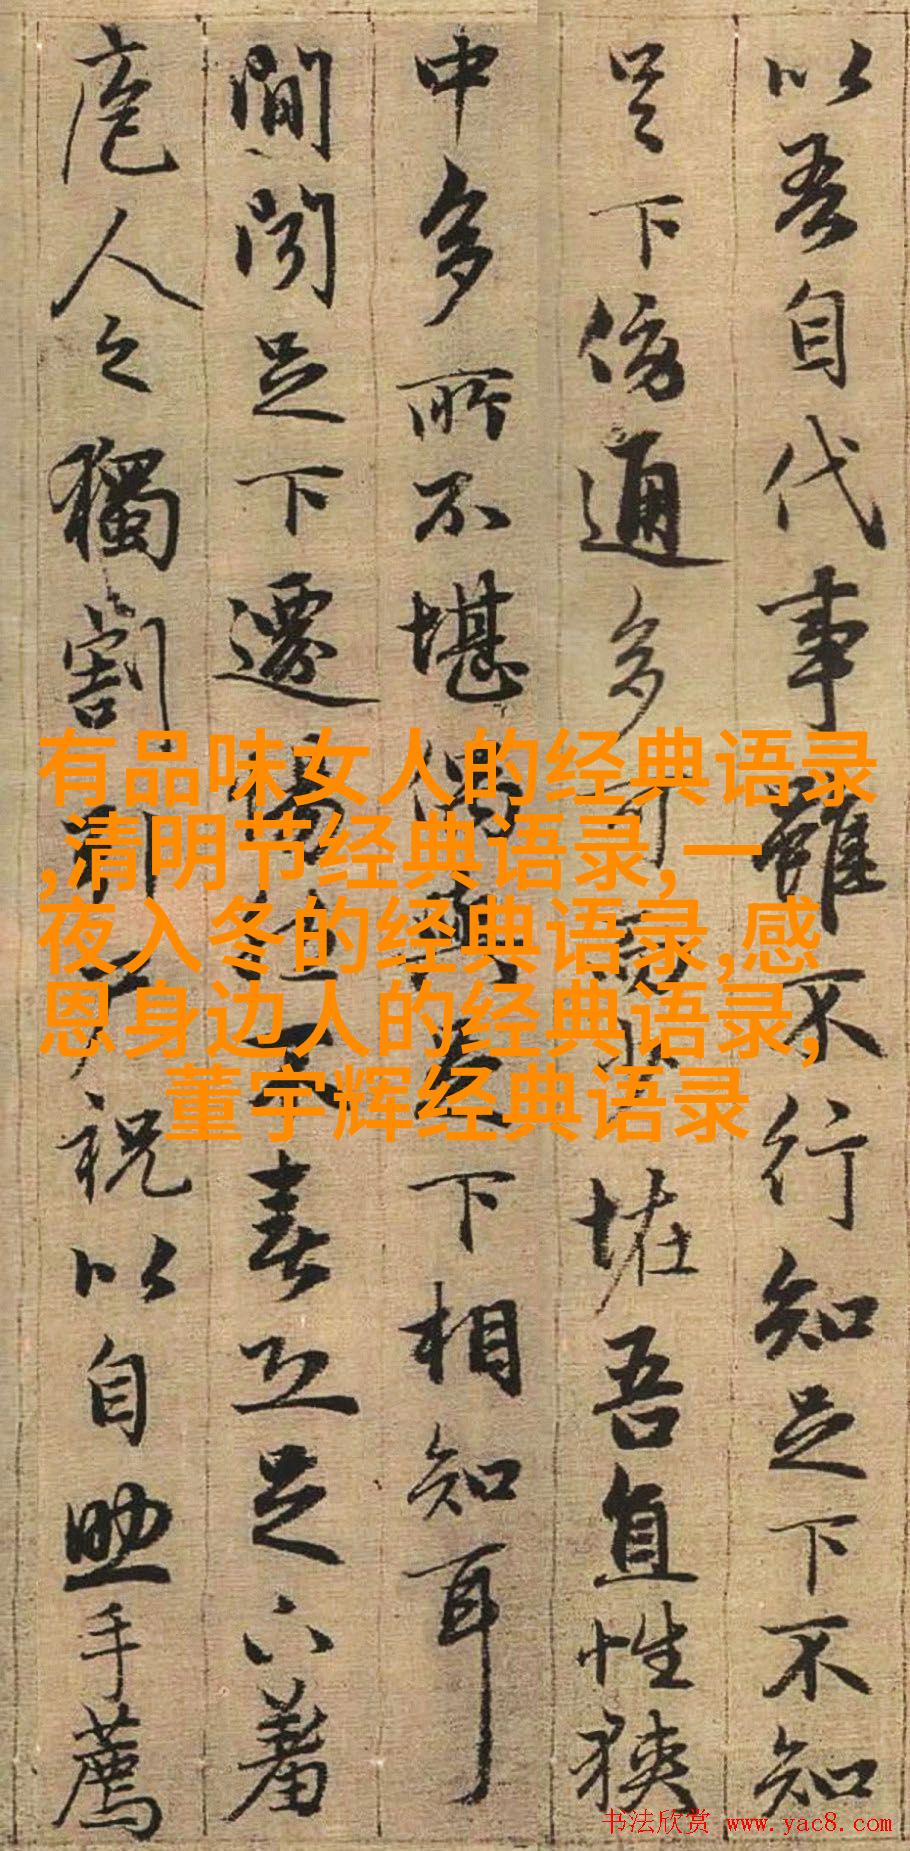 以吾自代事雖不行知足下不知
足下傍通多可少恠吾直性狹
中多所不堪偶與足下相知耳
間聞足下遷惕不喜恐足下羞
庖人之獨割引尸祝以自助手薦
有品味女人的经典语录
,清明节经典语录,一
夜入冬的经典语录,感
恩身边人的经典语录,
董宇辉经典语录
书法欣赏 www.yac8.com